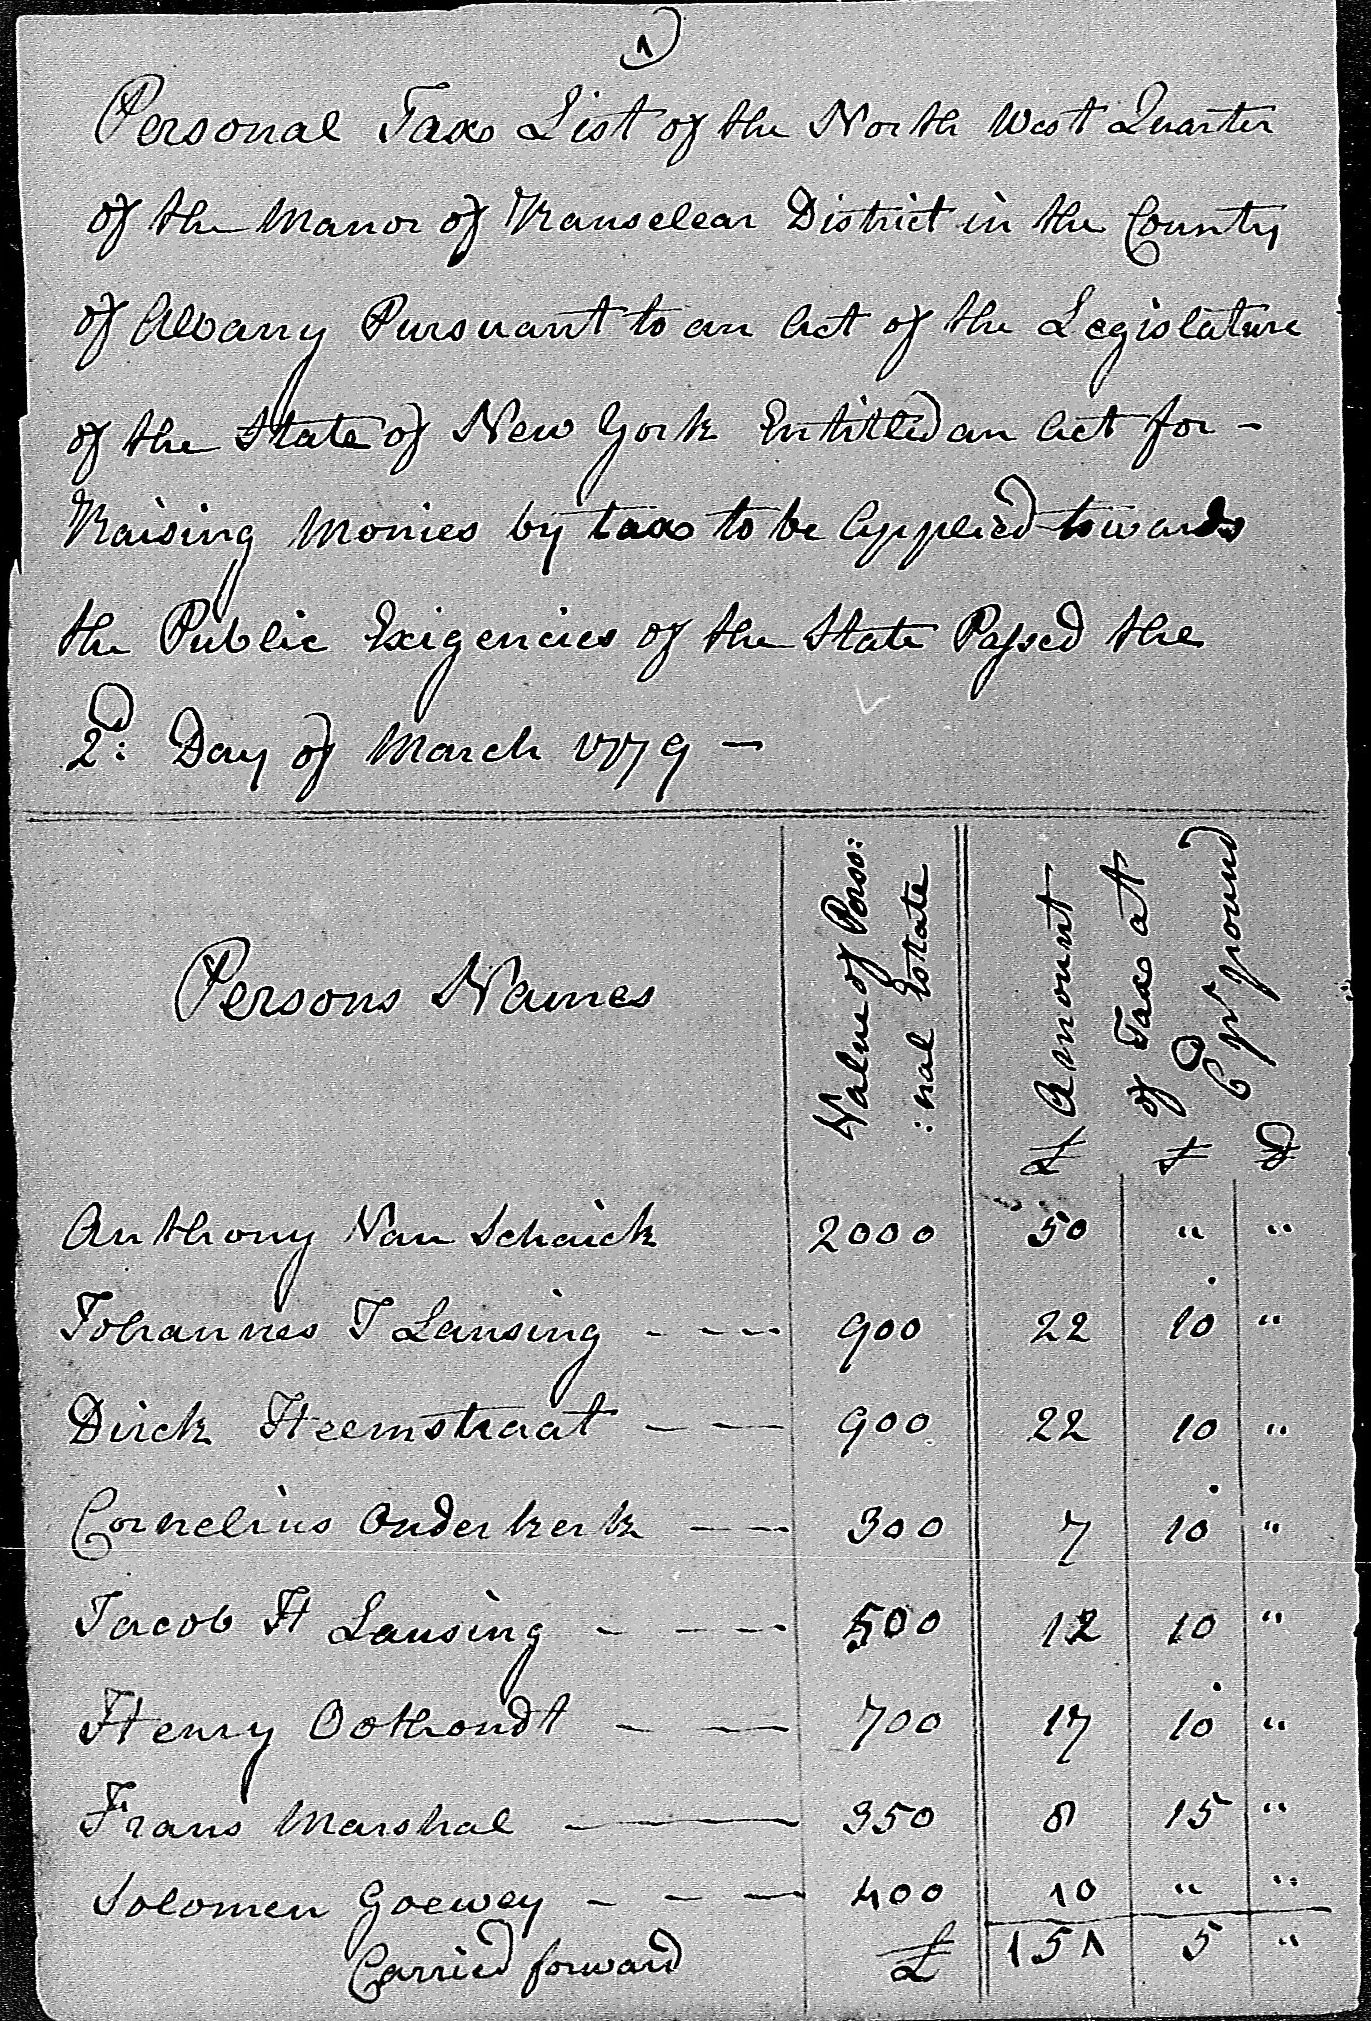 1
Personal Tax List of the North West Quarter
of the Manor of Ranselear District in the County
of Albany Pursuant to an Act of the Legislature
of the State of New York Entitled an Act for -
Raising Monies by tax to be Applied towards
the Public Exigencies of the State Passed the
2d: Day of March 1779 —
Persons Names
Value of Perso:
:nal Estate
Amount
of Tax at
6d pr pound
£ s d
Anthony Van Schaick 2000 50 " "
Johannes J Lansing - - - - 900 22 10 "
Dirck Heemstraat — — 900 22 10 "
Cornelius Onderkerk — — 300 7 10 "
Jacob H Lansing - - - - 500 12 10 "
Henry Oothoudt - — 700 17 10 "
Frans Marshal — — 350 8 15 "
Solomen Goewey - - — 400 10 " "
Carried forward £ 151 5 "